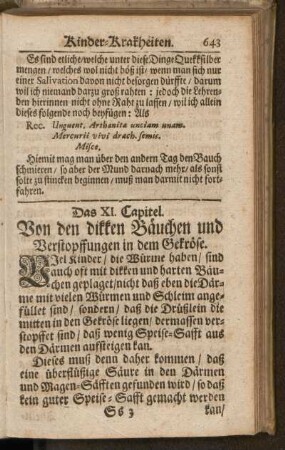 Kinder-Krakheiten. 643
Es sind etliche/welche unter diese Dinge Quekksilber
mengen/welches wol nicht böß ist/wenn man sich nur
einer Salivation davon nicht besorgen dürffte/darum
wil ich niemand darzu groß rahten: jedoch die Lehren-
den hierinnen nicht ohne Raht zu lassen/wil ich allein
dieses folgende noch beyfügen: Als
Rec. Unguent. Arthanitæ unciam unam.
Mercurii vivi drach. semis.
Misce.
Hiemit mag man über den andern Tag den Bauch
schmieren/so aber der Mund darnach mehr/als sonst
solte zu stincken beginnen/muß man darmit nicht fort-
fahren.
Das XI. Capitel.
Von den dikken Bäuchen und
Verstopffungen in dem Gekröse.
VIel Kinder/die Würme haben/sind
auch oft mit dikken und harten Bäu-
chen geplaget/nicht daß eben die Där-
me mit vielen Würmen und Schleim ange-
füllet sind/sondern/daß die Drüßlein die
mitten in den Gekröse liegen/dermassen ver-
stopffet sind/daß wenig Speise-Safft aus
den Därmen aufsteigen kan.
Dieses muß denn daher kommen/daß
eine überflüßige Säure in den Därmen
und Magen-Säfften gefunden wird/so daß
kein guter Speise-Safft gemacht werden
Ss 3 kan/